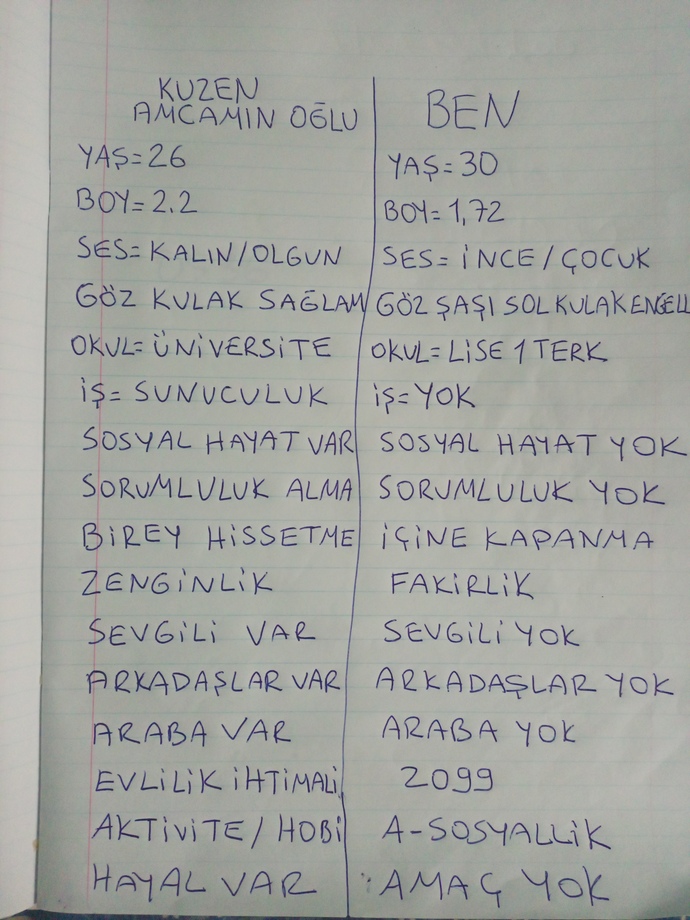 KUZEN
AMCAMIN OĞLU
YAŞ=26
BOY=2.2
SES=KALIN/OLGUN
GÖZ KULAK SAĞLAM
OKUL=ÜNİVERSİTE
İŞ=SUNUCULUK
SOSYAL HAYAT VAR
SORUMLULUK ALMA
BİREY HİSSETME
ZENGİNLİK
SEVGİLİ VAR
ARKADAŞLAR VAR
ARABA VAR
EVLİLİK İHTİMALİ
AKTİVİTE/HOBİ
HAYAL VAR
BEN
YAŞ=30
BOY=1,72
SES=İNCE/ÇOCUK
GÖZ ŞAŞI SOL KULAK ENGELL
OKUL=LİSE 1 TERK
İŞ=YOK
SOSYAL HAYAT YOK
SORUMLULUK YOK
İÇİNE KAPANMA
FAKİRLİK
SEVGİLİ YOK
ARKADAŞLAR YOK
ARABA YOK
2099
A-SOSYALLİK
AMAÇ YOK